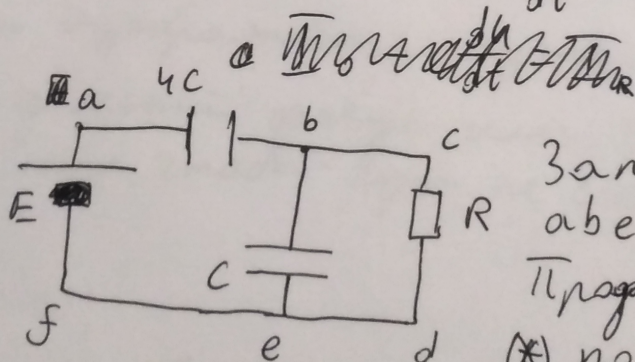 dt
a 4C b c
E C R
f e d
Зап
abe
Прод
(*) по